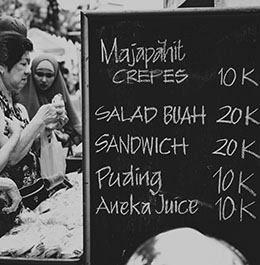 Majapahit
CREPES 10 K
SALAD BUAH 20 K
SANDWICH 20 K
Puding 10 K
Aneka Juice 10 K